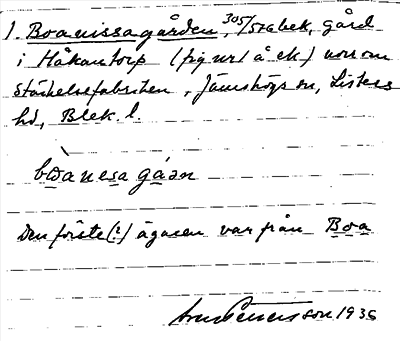 1. Boanissagården, 305/576 bek, gård
i Håkantorp (fig nr 1 å ek.) norr om
stärkelsefabriken, Jämshögs sn, Listers
hd, Blek. l.
bòanesa gáən
Den förste(?) ägaren var från Boa
1935